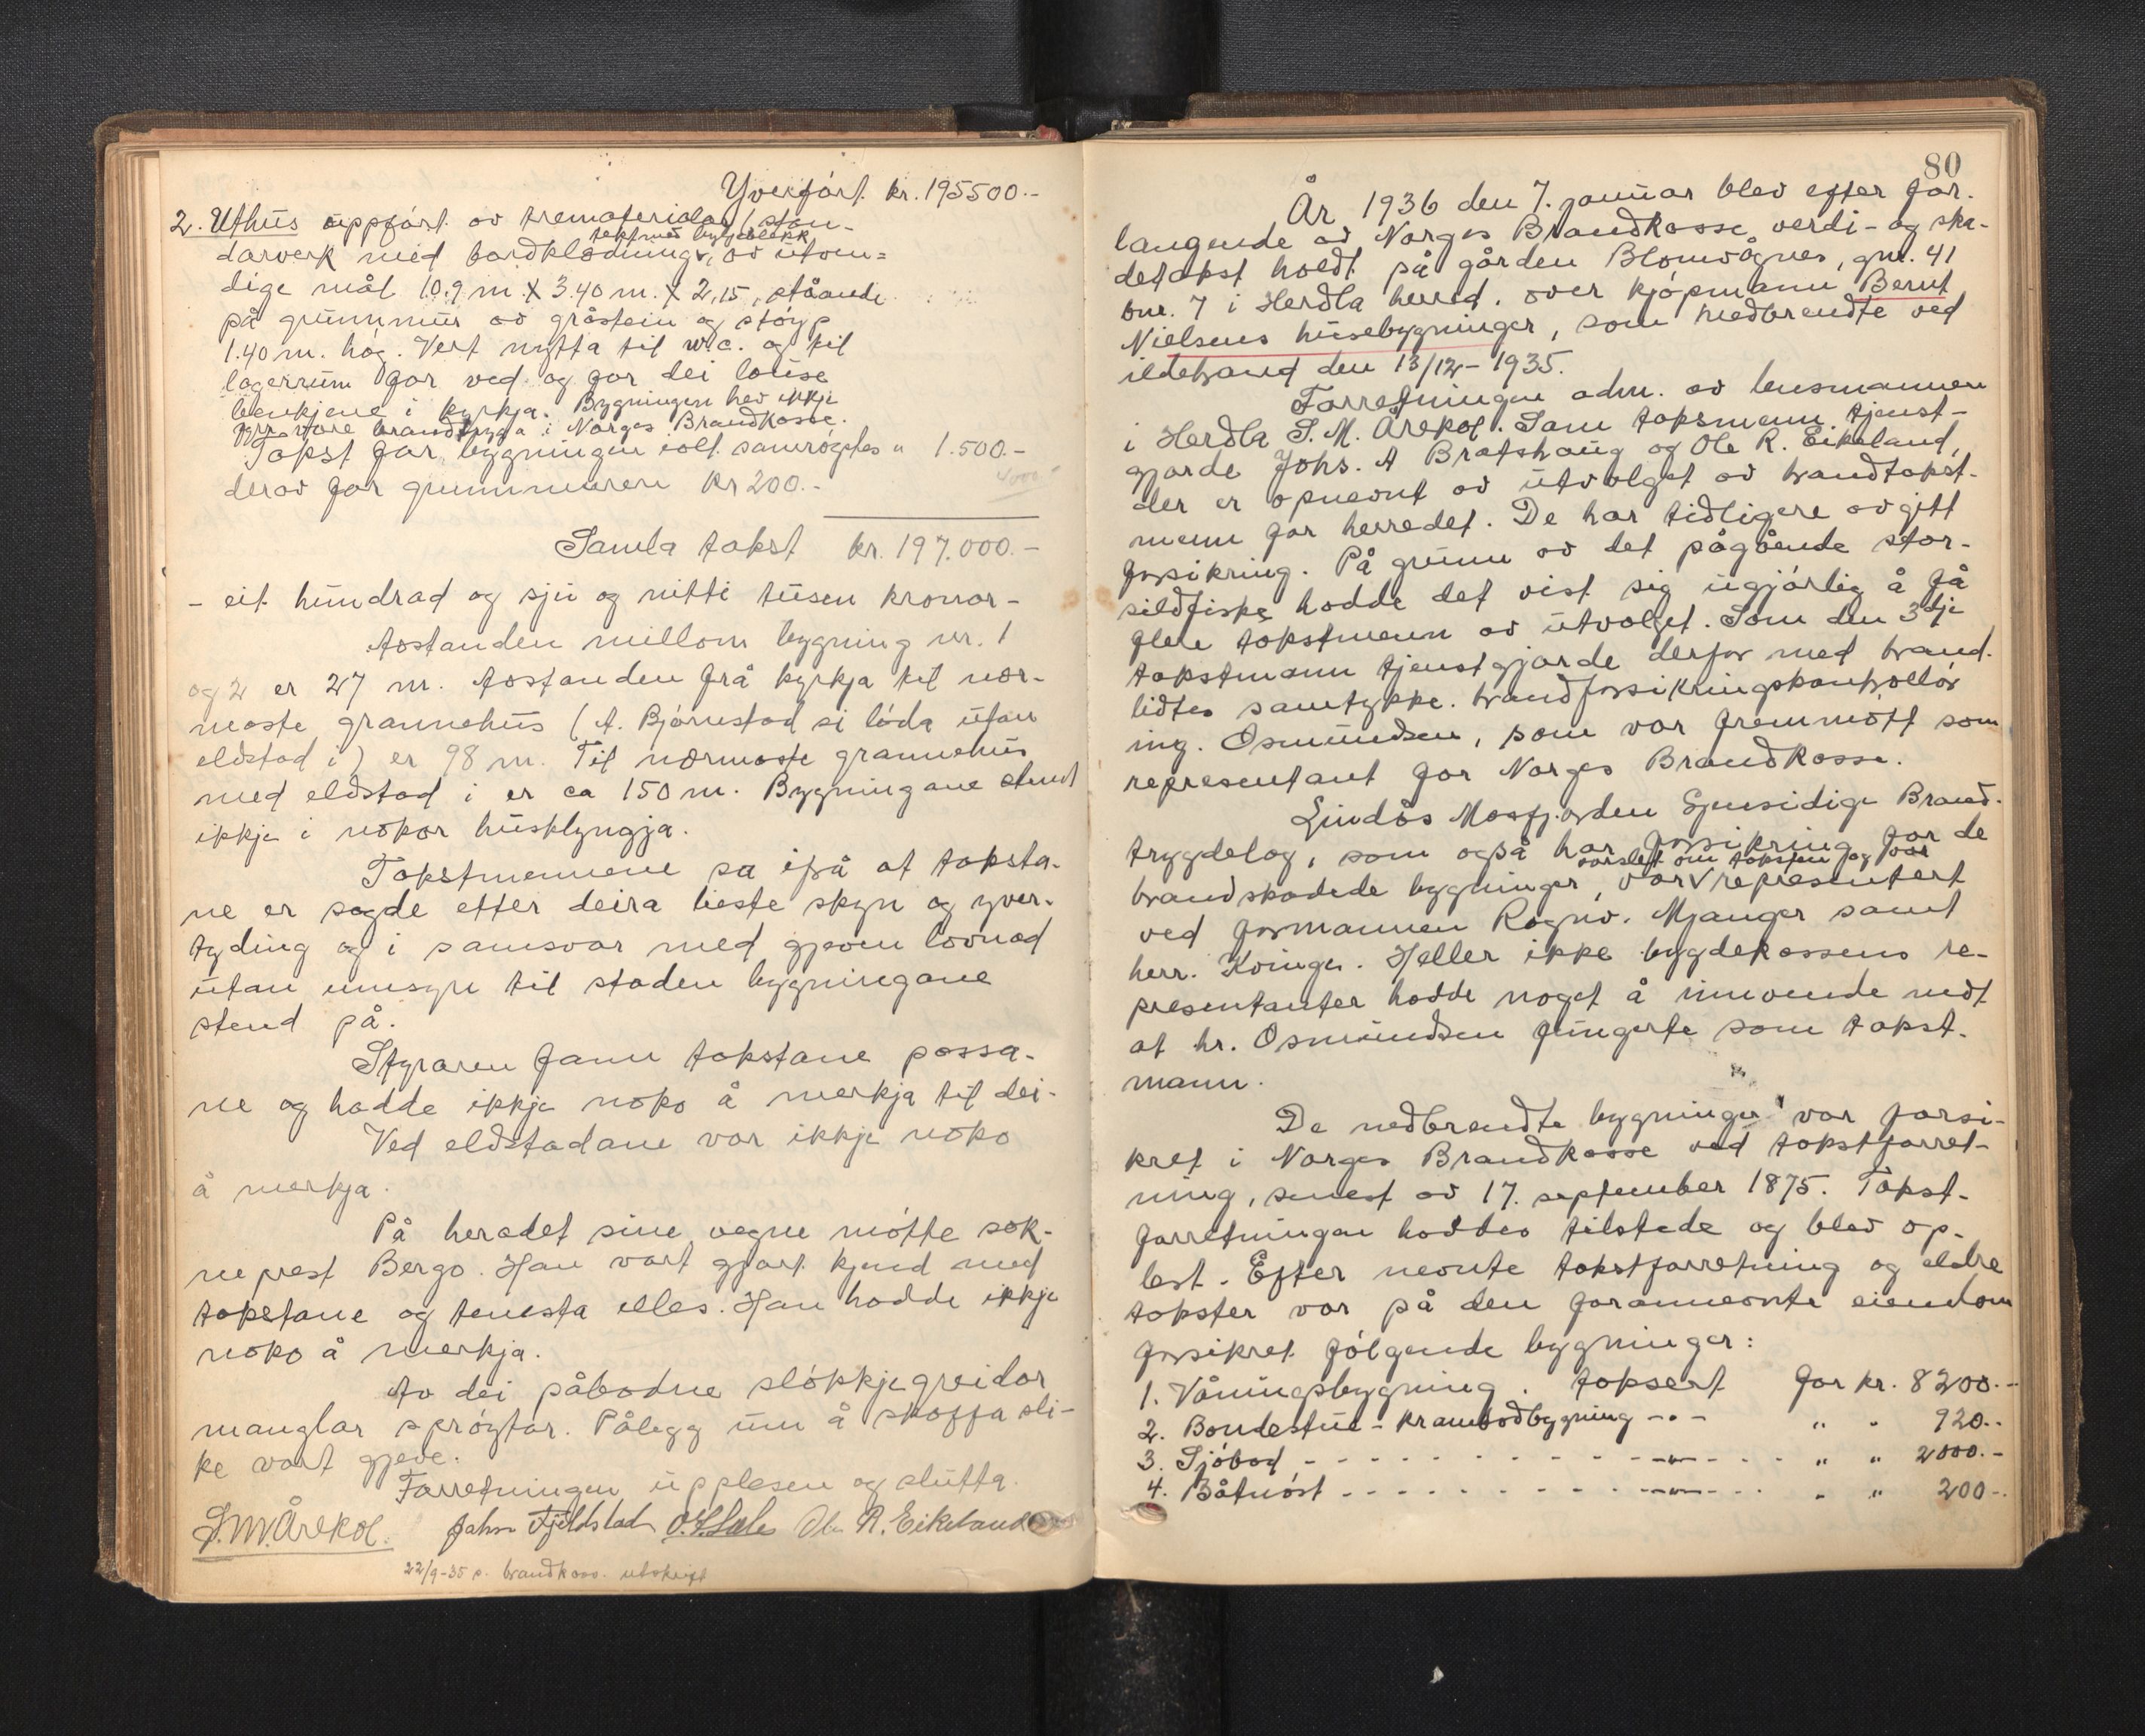 Yverført kr. 195500.-
2. Uthus uppført av trematerialar (stan-
tekt med bylgjeblikk
darverk med bordklædning, av utven-
dige mål 10.9 m X 3.40 m. X 2,15, ståande
på grunnmur av gråstein og støyp
1.40 m. høg. Vert nytta til w.c. og til
lagerrum for ved og for dei lause
benkjene i kyrkja. Bygningen hev ikkje
fyrr vore brandtrygda i Norges Brandkasse.
Takst for bygningen iolt. samrøystes " 1.500.-
derav for grunnmuren kr 200.-
4000
Samla takst kr. 197.000.-
- eit hundrad og sju og nitti tusen kronor-
Avstanden millom bygning nr. 1
og 2 er 27 m. Avstanden frå kyrkja til nær-
maste grannehus (A. Bjørnstad si løda utan
eldstad i) er 98 m. Til nærmaste grannehus
med eldstad i er ca 150 m. Bygningane stend
ikkje i nokor husklyngja.
Takstmennene sa ifrå at taksta-
ne er sagde etter deira beste skyn og yver-
tyding og i samsvar med gjeven lovnad
utan umsyn til staden bygningane
stend på.
Styraren fann takstane passa-
ne og hadde ikkje noko å merkja til dei.
Ved eldstadane var ikkje noko
å merkja.
På heradet sine vegne møtte sok-
neprest Bergo. Han vart gjort kjend med
takstane og tenesta elles. Han hadde ikkje
noko å merkja.
Av dei påbodne sløkkjegreidor
manglar sprøytar. Pålegg um å skaffa sli-
ke vart gjeve.
Forretningen upplesen og slutta.
S.M. Årekol. Johs Fjeldstad Ole R. Eikeland
22/9-35 s. brandkass. utskrift
80
År 1936 den 7. januar blev efter for-
langende av Norges Brandkasse verdi- og ska-
detakst holdt på gården Blomvågnes, gnr. 41
bnr. 7 i Herdla herred. over kjøpmann Bernt
Nielsens husebygninger, som nedbrendte ved
ildebrand den 13/12-1935.
Forretningen adm. av lensmannen
i Herdla S. M. Årekol. Som taksmenn tjenst-
gjorde Johs. A Bratshaug og Ole R. Eikeland,
der er opnevnt av utvalget av brandtakst-
menn for herredet. De har tidligere avgitt
forsikring. På grunn av det pågående stor-
sildfiske hadde det vist sig ugjørlig å få
flere takstmenn av utvalget. Som den 3dje
takstmann tjenstgjorde derfor med brand-
lidtes samtykke. brandforsikringskontrollør
ing. Osmundsen, som var fremmøtt som
representant for Norges Brandkasse.
Lindås Masfjorden Gjensidige Brand-
trygdelag, som også har forsikring for de
varslet om taksten og var
brandskadede bygninger, var V representert
ved formannen Rognv. Mjanger samt
herr. Kvinge. Heller ikke bygdekassens re-
presentanter hadde noget å innvende mot
at hr. Osmundsen fungerte som takst-
mann.
De nedbrendte bygninger var forsi-
kret i Norges Brandkasse ved takstforret-
ning, senest av 17. september 1875. Takst-
forretningen haddes tilstede og blev op-
lest. Efter nevnte takstforretning og eldre
takster var på den forannevnte eiendom
forsikret følgende bygninger:
1. Våningsbygning. taksert for kr. 8200.-
2. Bondestue - krambodbygning -"- " " 920.-
3. Sjøbod - - - - - -"- - - " " 2000.-
4. Båtnøst - - - - - -"- - - " " 200-.